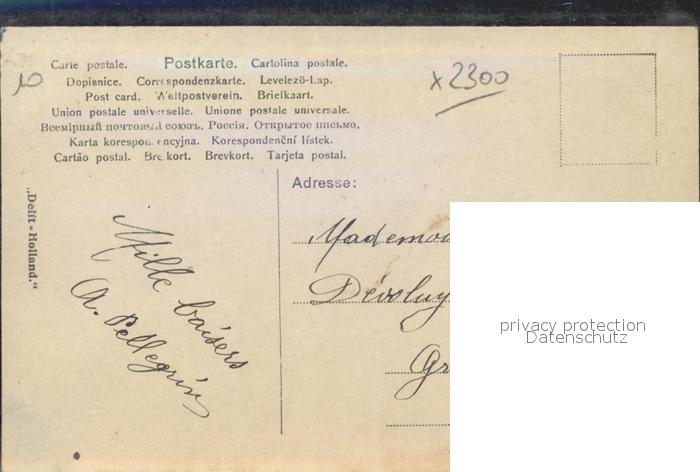 10
x2300
Carte postale. Postkarte. Cartolina postale.
Dopisnice. Correspondenzkarte. Levelező-Lap.
Post card. Weltpostverein. Briefkaart.
Union postale universelle. Unione postale universale.
Всемірный почтовый союзъ. Россія. Открытое письмо.
Karta korespondencyjna. Korespondenční lístek.
Cartão postal. Brevkort. Brevkort. Tarjeta postal.
Adresse:
„Delft-Holland.“
Mille baisers
A. Pellegrin
Mademoi
Dévoluy
Gr
privacy protection
Datenschutz